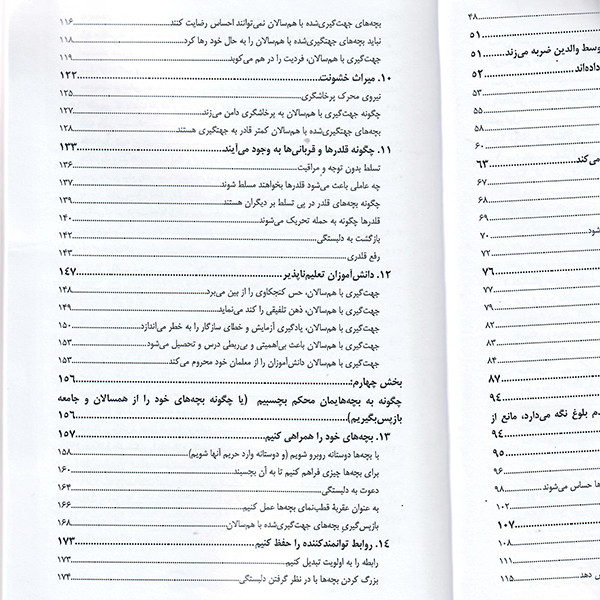 بچه‌های جهت‌گیری‌شده با هم‌سالان نمی‌توانند احساس رضایت کنند ۱۱۶
نباید بچه‌های جهتگیری‌شده با هم‌سالان را به حال خود رها کرد ۱۱۸
جهت‌گیری با هم‌سالان، فردیت را در هم می‌کوبد ۱۱۹
۱۰. میراث خشونت ۱۲۲
نیروی محرک پرخاشگری ۱۲۵
چگونه جهت‌گیری با هم‌سالان به پرخاشگری دامن می‌زند ۱۲۷
بچه‌های جهتگیری‌شده با هم‌سالان کمتر قادر به جهتگیری هستند ۱۲۸
۱۱. چگونه قلدرها و قربانی‌ها به وجود می‌آیند ۱۳۳
تسلط بدون توجه و مراقبت ۱۳۶
چه عاملی باعث می‌شود قلدرها بخواهند مسلط شوند ۱۳۷
چگونه بچه‌های قلدر در پی تسلط بر دیگران هستند ۱۳۹
قلدرها چگونه به حمله تحریک می‌شوند ۱۴۰
بازگشت به دلبستگی ۱۴۲
رفع قلدری ۱۴۳
۱۲. دانش‌آموزان تعلیم‌ناپذیر ۱۴۷
جهت‌گیری با هم‌سالان، حس کنجکاوی را از بین می‌برد ۱۴۸
جهت‌گیری با هم‌سالان، ذهن تلفیقی را کند می‌نماید ۱۴۹
جهت‌گیری با هم‌سالان، یادگیری آزمایش و خطای سازگار را به خطر می‌اندازد ۱۵۰
جهت‌گیری با هم‌سالان باعث بی‌اهمیتی و بی‌ربطی درس و تحصیل می‌شود ۱۵۳
جهت‌گیری با هم‌سالان دانش‌آموزان را از معلمان خود محروم می‌کند ۱۵۳
بخش چهارم: ۱۵۶
چگونه به بچه‌هایمان محکم بچسبیم (یا چگونه بچه‌های خود را از همسالان و جامعه
بازپس‌بگیریم) ۱۵۶
۱۳. بچه‌های خود را همراهی کنیم ۱۵۷
با بچه‌ها دوستانه روبرو شویم (و دوستانه وارد حریم آنها شویم) ۱۵۸
برای بچه‌ها چیزی فراهم کنیم تا به آن بچسبند ۱۶۰
دعوت به دلبستگی ۱۶۴
به عنوان عقربهٔ قطب‌نمای بچه‌ها عمل کنیم ۱۶۶
بازپس‌گیری بچه‌های جهت‌گیری‌شده با هم‌سالان ۱۶۸
۱۴. روابط توانمندکننده را حفظ کنیم ۱۷۳
رابطه را به اولویت تبدیل کنیم ۱۷۳
بزرگ کردن بچه‌ها با در نظر گرفتن دلبستگی ۱۷۴
۴۸
۵۱
وسط والدین ضربه می‌زند ۵۱
داده‌اند ۵۲
۵۳
۵۵
۵۸
۶۰
می‌کند ۶۳
۶۷
۶۸
۶۹
شود ۷۰
۷۲
۷۶
۷۷
۷۹
۸۲
۸۳
۸۴
۸۷
۹۴
دم بلوغ نگه می‌دارد، مانع از
۹۴
۹۵
۹۶
ها حساس می‌شوند ۹۸
۱۰۲
۱۰۷
۱۰۸
۱۱۱
ش دهد ۱۱۵